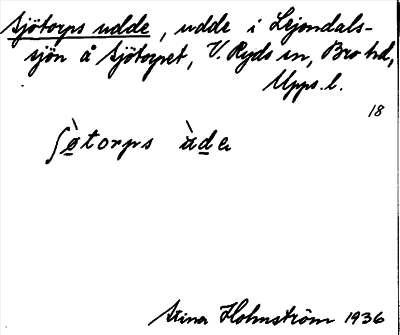 Sjötorps udde, udde i Lejondals-
sjön å Sjötorpet, V. Ryds sn, Bro hd,
Upps. l.
18
ʃø̀torps ùde
Stina Holmström 1936